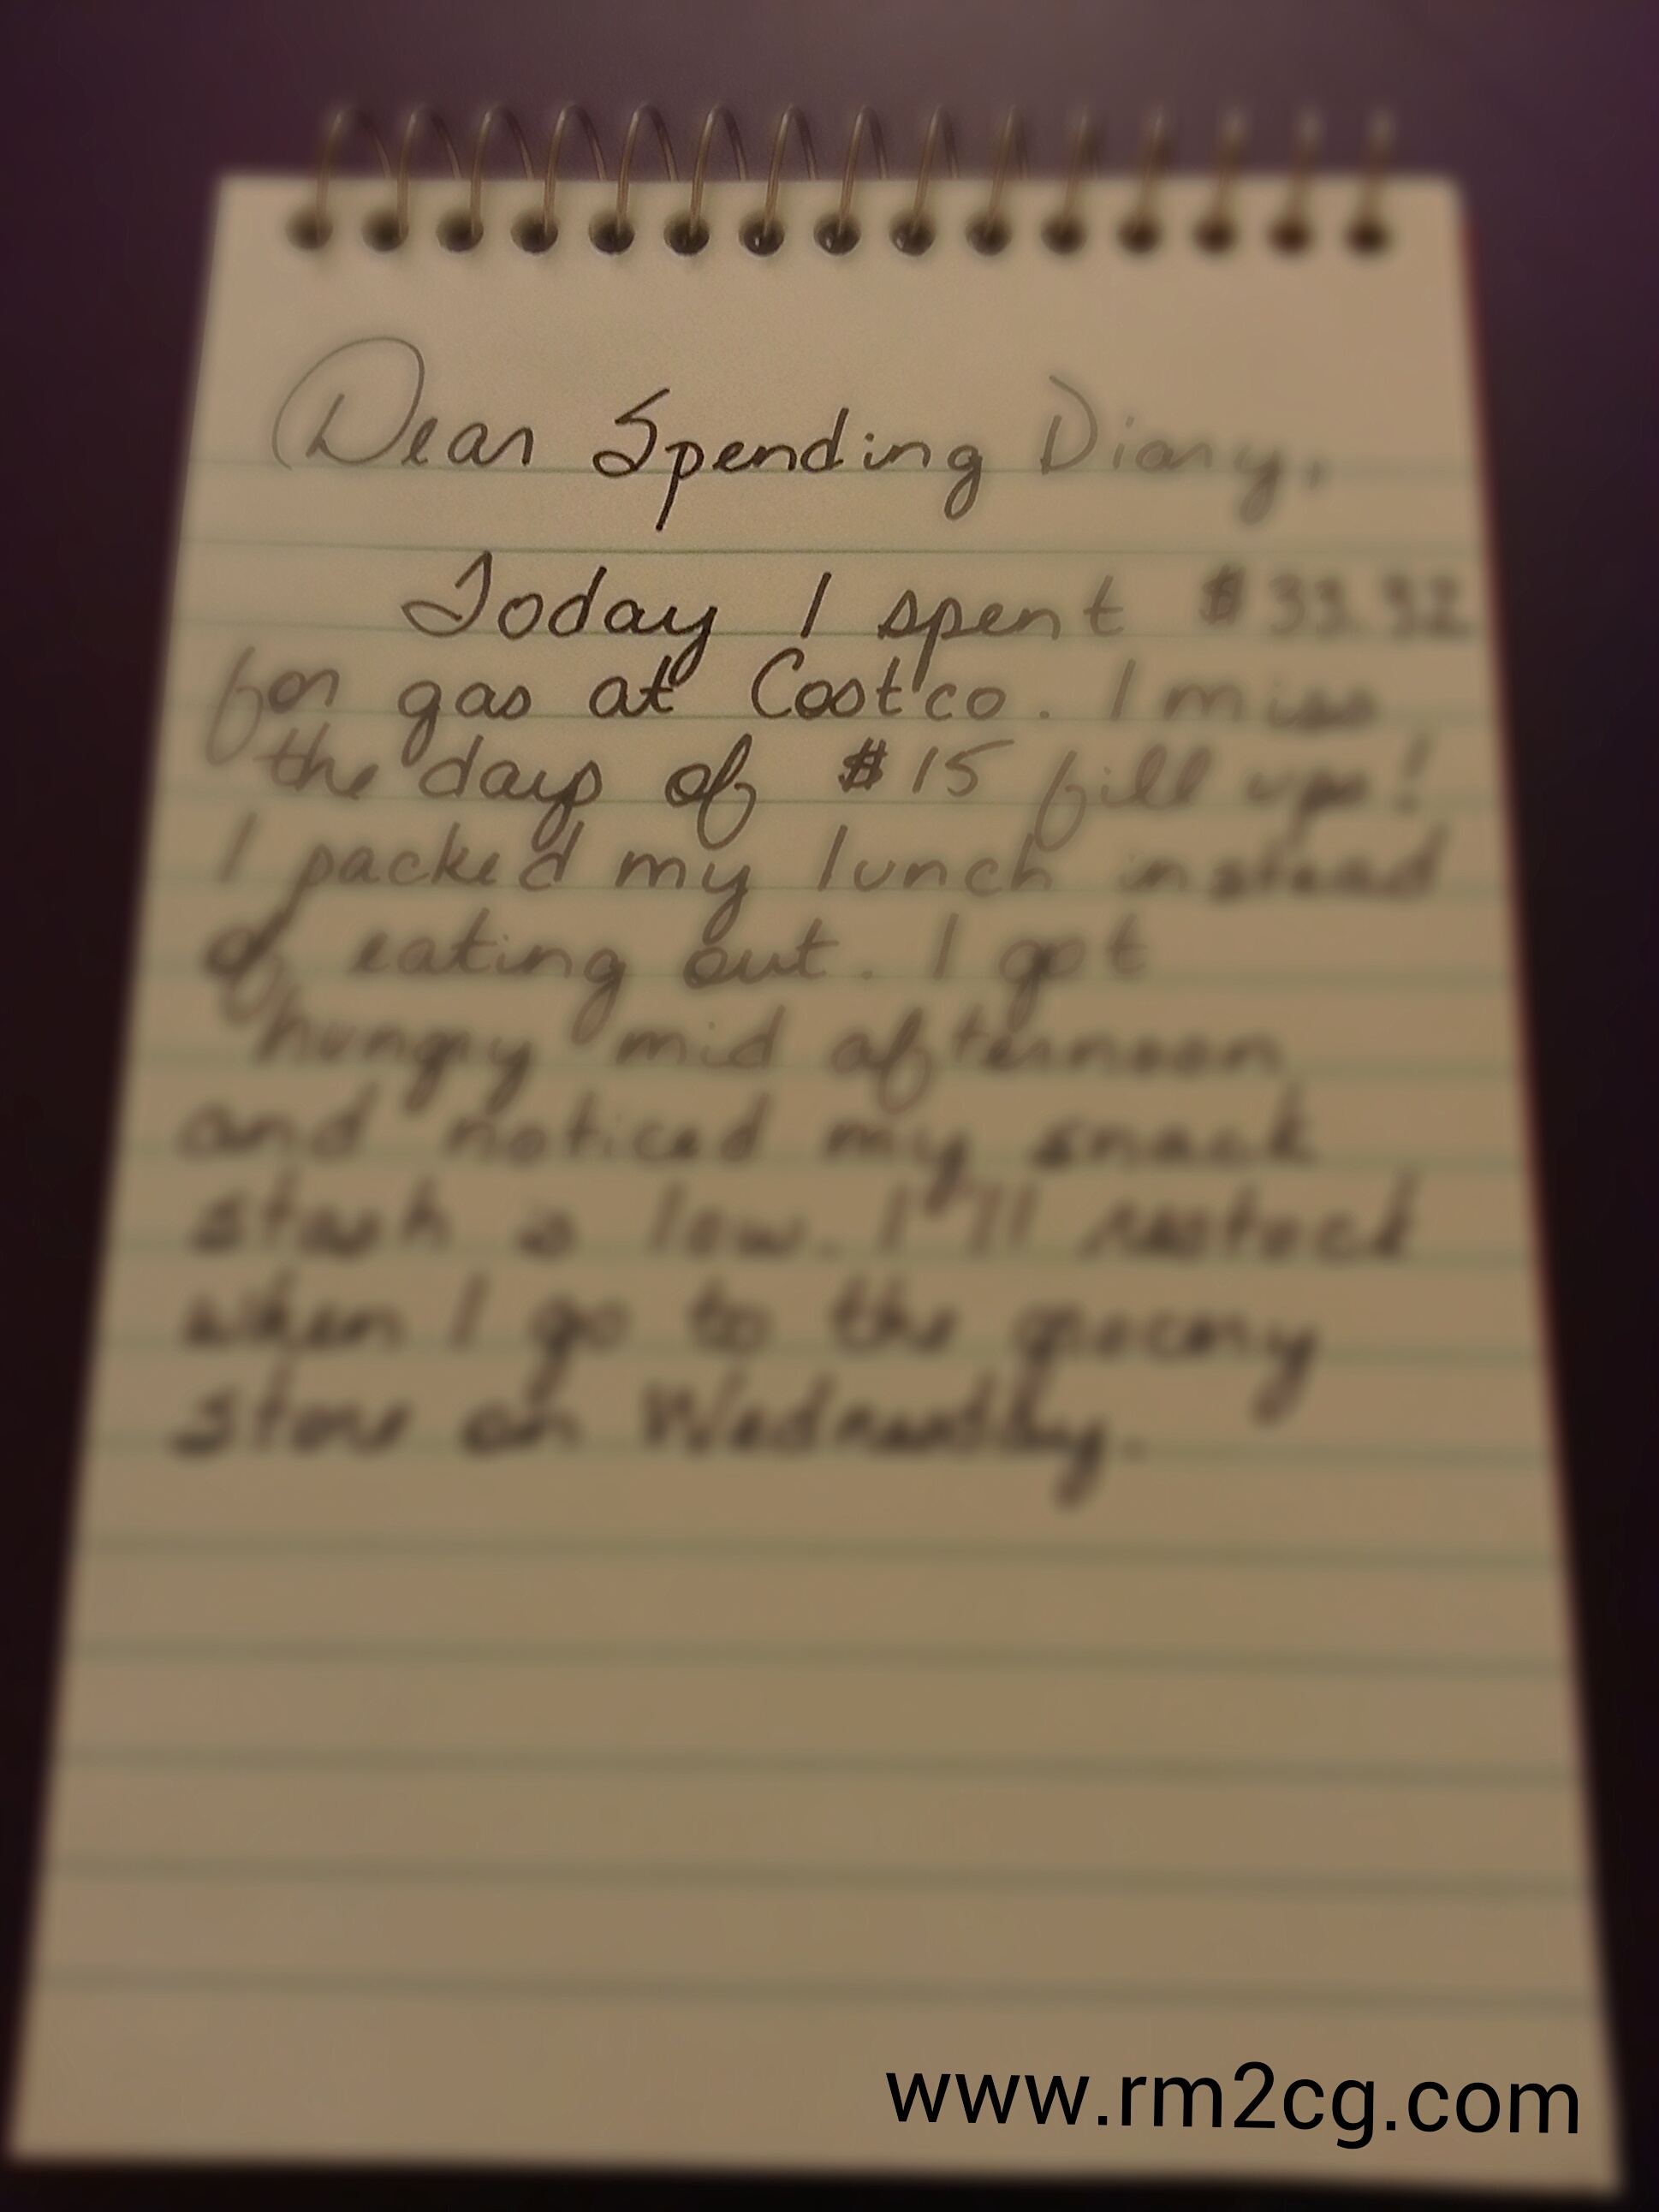 Dear Spending Diary,
Today I spent $33.32
for gas at Costco. I miss
the days of $15 fill ups!
I packed my lunch instead
of eating out. I got
hungry mid afternoon
and noticed my snack
stash is low. I'll restock
when I go to the grocery
store on Wednesday.
www.rm2cg.com